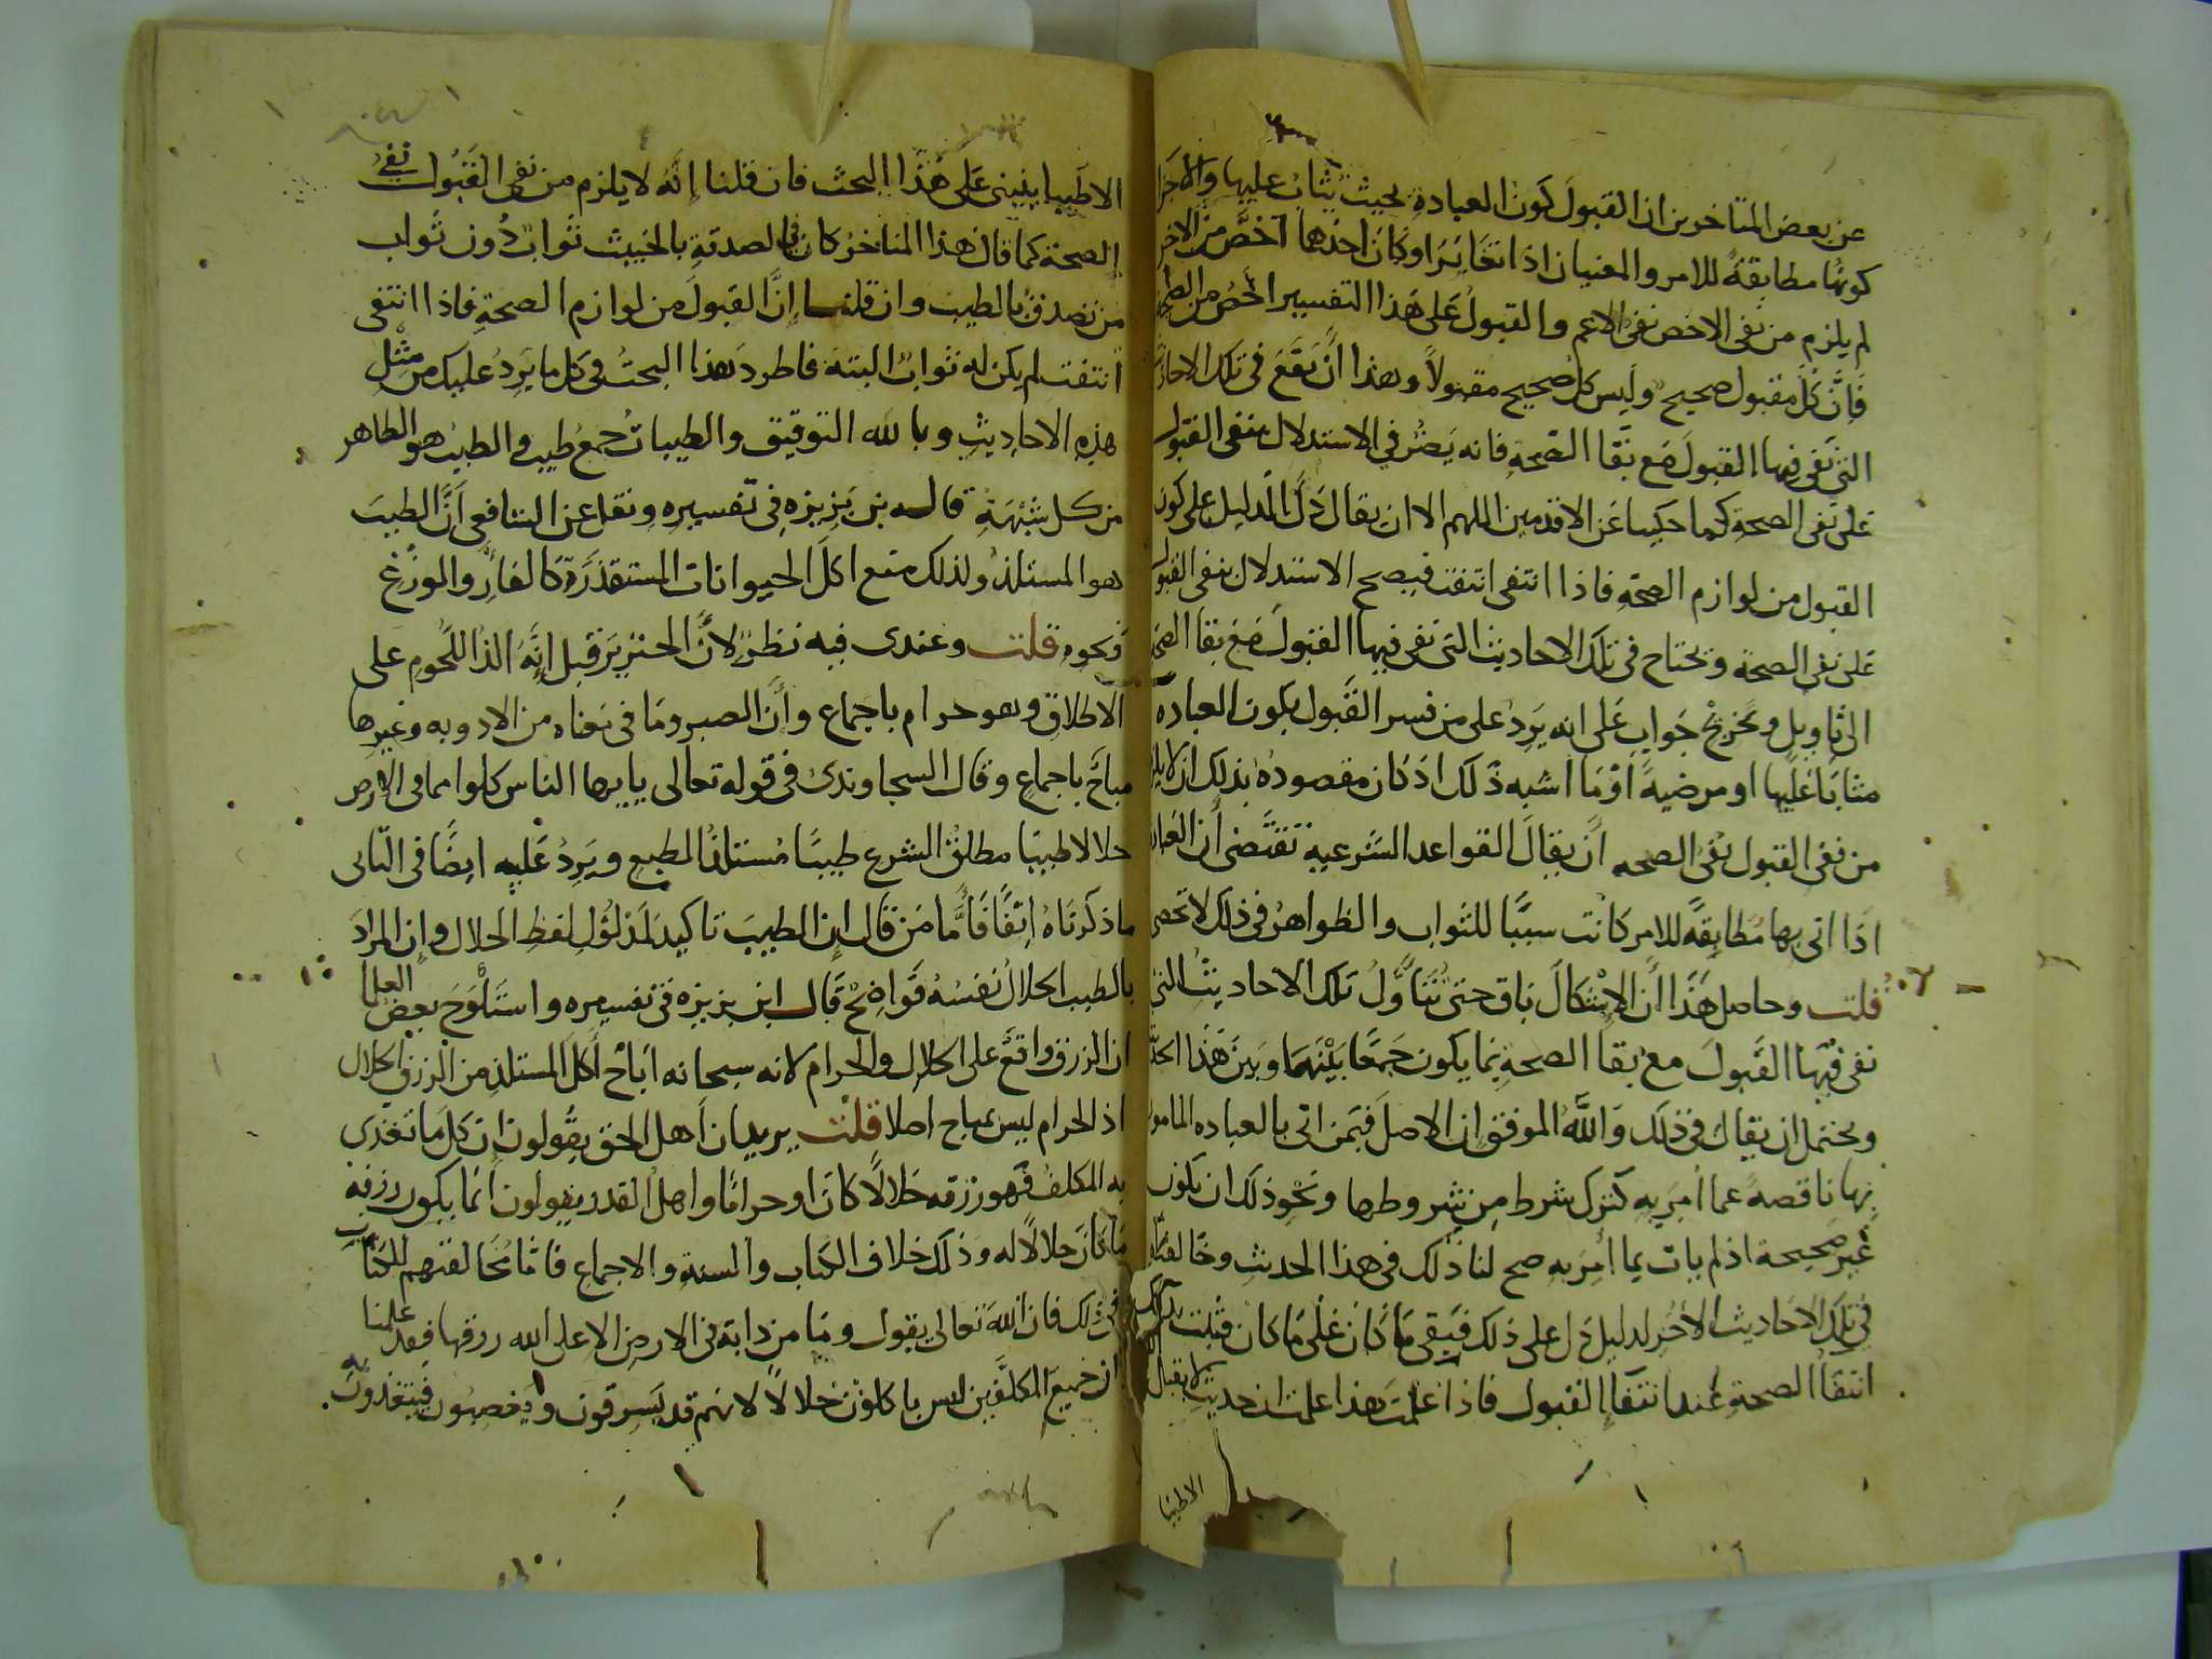 عن بعض المتاخرين ان القبول كون العبادة بحيث يثاب عليها والاجزا
كونها مطابقة للامر والمعنيان اذا تغايرا وكان احدهما اخص من الاخر
لم يلزم من نفى الاخص نفى الاعم والقبول على هذا التفسير اخص من الصحة
فان كل مقبول صحيح وليس كل صحيح مقبولا وهذا ان يقع فى تلك الاحاديث
التى نفى فيها القبول مع بقا الصحة فانه يضر في الاستدلال بنفى القبول
على نفى الصحة كما حكينا عن الاقدمين اللهم الا ان يقال دل الدليل على كون
القبول من لوازم الصحة فاذا انتفى انتفت فيصح الاستدلال بنفى القبول
على نفى الصحة ويحتاج فى تلك الاحاديث التى نفى فيها القبول مع بقا الصحة
الى تاويل وتخريج جواب على انه يرد على من فسر القبول بكون العبادة
مثابا عليها او مرضية او ما اشبه ذلك اذ كان مقصوده بذلك ان لا يلزم
من نفى القبول نفى الصحه ان يقال القواعد الشرعية تقتضى ان العبادة
اذا اتى بها مطابقة للامر كانت سببا للثواب والظواهر فى ذلك لا تحصى
قلت وحاصل هذا ان الاشكال باق حتى نتأول تلك الاحاديث التى
نفى فيها القبول مع بقا الصحة بما يكون جمعا بينهما وبين هذا الحديث
ويحتمل ان يقال فى ذلك والله الموفق ان الاصل فيمن اتى بالعباده المامور
بها ناقصة عما امر به كترك شرط من شروطها ونحو ذلك ان يكون
غير صحيحة اذ لم يات بما أمر به صح لنا ذلك فى هذا الحديث وخالفناه
فى تلك الاحاديث الاخر لدليل دل على ذلك فيبقى ما كان على ما كان فثبت بذلك
انتفا الصحة عند انتفا القبول فاذا علمت هذا علمت ان حديث لا يقبل
الاطيبا
الاطيبا ينبنى على هذا البحث فان قلنا إنه لا يلزم من نفى القبول نفى
الصحة كما قال هذا المتاخر كان فى الصدقة بالخبيث ثواب دون ثواب
من تصدق بالطيب وان قلنا إن القبول من لوازم الصحة فاذا انتفى
انتفت لم يكن له ثواب البتة فاطرد هذا البحث فى كل ما يرد عليك من مثل
هذه الاحاديث وبالله التوفيق والطيبات جمع طيب والطيب هو الطاهر
من كل شبهة قاله بن بزيزه فى تفسيره ونقل عن الشافعى ان الطيب
هو المستلذ ولذلك منع اكل الحيوانات المستقذرة كالفار والوزغ
ونحوه قلت وعندى فيه نظر لان الخنزير قيل إنه الذ اللحوم على
الاطلاق وهو حرام باجماع وأن الصبر وما فى معناه من الادويه وغيرها
مباح باجماع وقال السجاوندى فى قوله تعالى يايها الناس كلوا مما فى الارض
حلالا طيبا مطلق الشرع طيبا مستلذ الطبع ويرد عليه ايضا فى الثانى
ما ذكرناه اتفاقا فأما من قال إن الطيب تاكيد لمدلول لفظ الحلال وإن المراد
بالطيب الحلال نفسه فواضح قال ابن بزيزه فى تفسيره واستلوح بعض العلما
ان الرزق واقع على الحلال والحرام لانه سبحانه اباح أكل المستلذ من الرزق الحلال
اذ الحرام ليس بمباح اصلا قلت يريد ان اهل الحق يقولون ان كل ما تغذى
به المكلف فهو رزقه حلالا كان او حراما واهل القدر يقولون انما يكون رزقه
ما كان حلالا له وذلك خلاف الكتاب والسنة والاجماع فاما مخالفتهم للكتاب
فى ذلك فان الله تعالى يقول وما من دابة فى الارض الا على الله رزقها فقد علمنا
ان جميع المكلفين ليس ياكلون حلالا لانهم قد يسرقون ويغصبون فيتغذون به